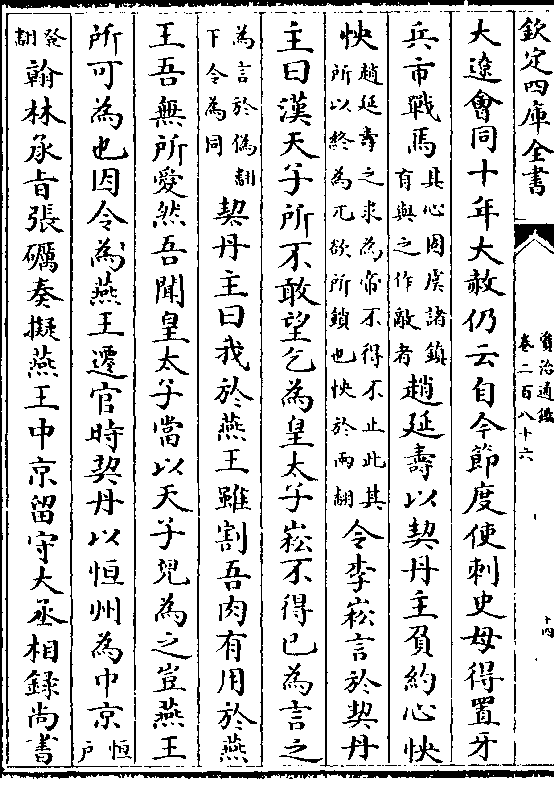 欽定四庫全書
資治通鑑
卷二百八十六
十四
大遼會同十年大赦仍云自今節度使刺史毋得置牙
兵市戰馬其心固虞諸鎮有與之作敵者趙延壽以契丹主負約心怏
怏趙延壽之求為帝不得不止此其所以終為兀欲所鎖也怏於兩翻令李崧言於契丹
主曰漢天子所不敢望乞為皇太子崧不得已為言之
為言於偽翻下令為同契丹主曰我於燕王雖割吾肉有用於燕
王吾無所愛然吾聞皇太子當以天子兒為之豈燕王
所可為也因令為燕王遷官時契丹以恒州為中京恒户
登翻翰林承旨張礪奏擬燕王中京留守大丞相錄尚書